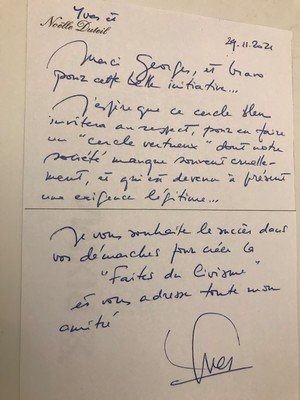 Yves et
Noëlle Duteil
29.11.2021
Merci Georges, et bravo
pour cette belle initiative...
J'espère que ce cercle bleu
invitera au respect, pour en faire
un "cercle vertueux" dont notre
société manque souvent cruelle-
ment, et qui est devenu à présent
une exigence légitime...
Je vous souhaite le succès dans
vos démarches pour créer la
"Faites du Civisme"
et vous adresse toute mon
amitié
Yves